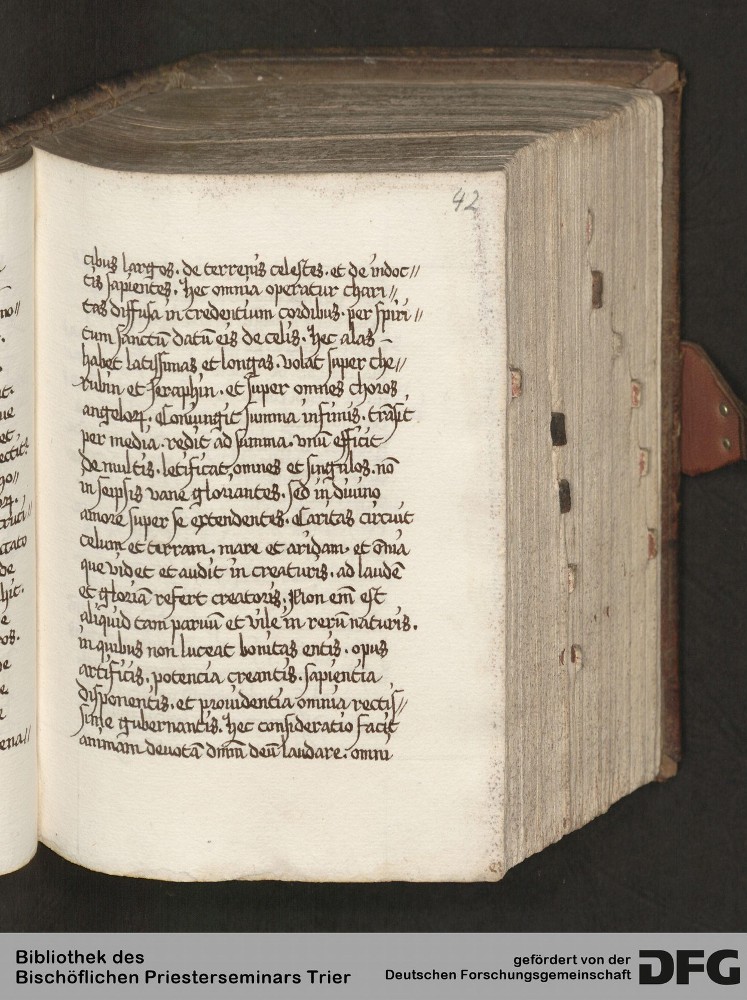 42
cibus largos. de terrenis celestes. et de indoc//
tis sapientes. hec omnia operatur chari//
tas diffusa in credentium cordibus. per spiri//
tum sanctū datū eis de celis. hec alas
habet latissimas et longas. volat super che//
rubin et seraphin. et super omnes choros
angeloꝝ. Coniungit summa infimis. trāsit
per media. redit ad summa. vnū efficit
de multis. letificat omnes et singulos. nō
in seipsis vane gloriantes. sed in diuino
amore super se extendentes. Caritas circuit
celum et terram. mare et aridam. et oīnia
que videt et audit in creaturis. ad laudē
et gloriā refert creatoris. Non em̄ est
aliquid tam paruū et vile in rerū naturis.
in quibus non luceat bonitas entis. opus
artificis. potencia creantis. sapientia
disponentis. et prouidentia omnia rectis//
sime gubernantis. hec consideratio facit
animam deuotā dn̄m deū laudare. omni
Bibliothek des
Bischöflichen Priesterseminars Trier
gefördert von der
Deutschen Forschungsgemeinschaft
DFG